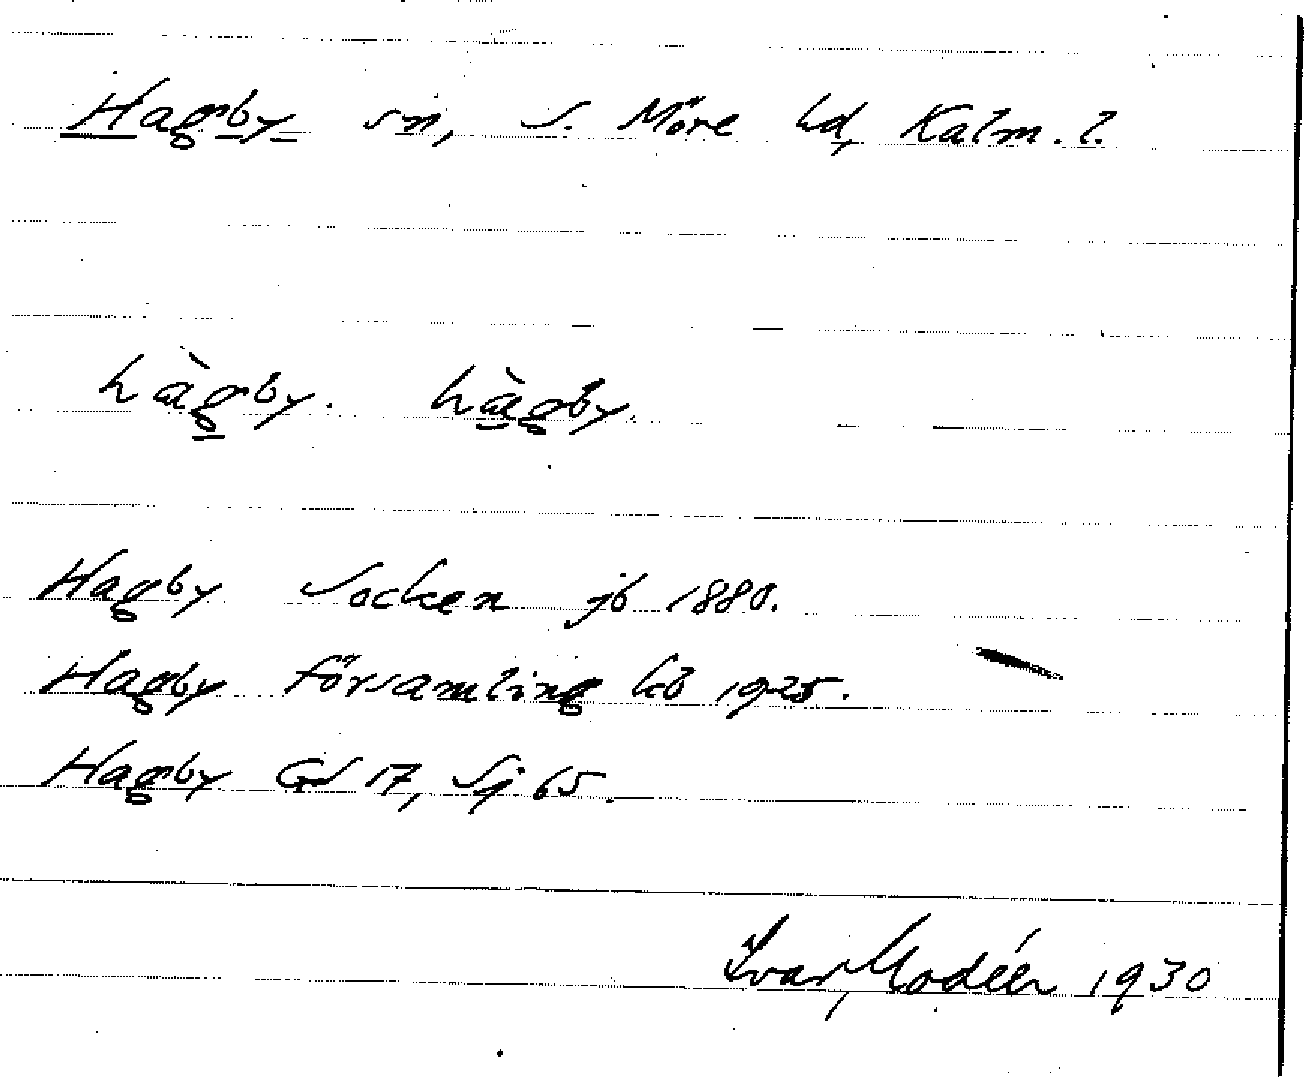 Hagby sn, S. Möre hd, Kalm. l.
hàgby. hàgby.
Hagby Socken jb 1880.
Hagby församling kb 1925.
Hagby GS 17, Sj 65.
Ivar Modéer 1930